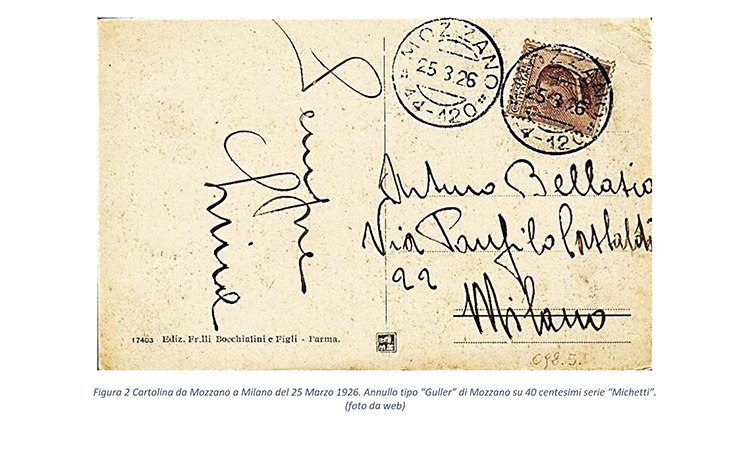 MOZZANO
25 3 26
44-120
25 3 26
4-120
Arturo Bellasio
Via Panfilo Castaldi
22
Milano
17403 Ediz. Fr.lli Bocchialini e Figli - Parma.
Figura 2 Cartolina da Mozzano a Milano del 25 Marzo 1926. Annullo tipo “Guller” di Mozzano su 40 centesimi serie “Michetti”.
(foto da web)